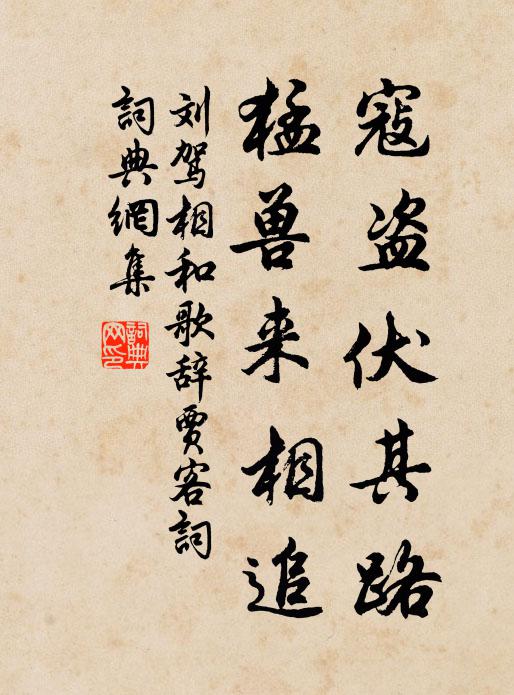 寇盗伏其路
猛兽来相追
刘驾相和歌辞贾客詞
詞典網集
詞典
网印